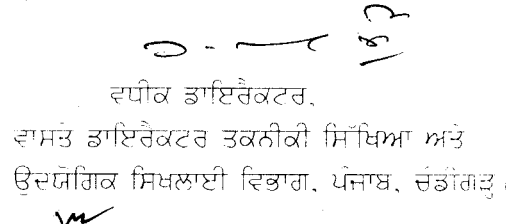 ਵਧੀਕ ਡਾਇਰੈਕਟਰ,
ਵਾਸਤੇ ਡਾਇਰੈਕਟਰ ਤਕਨੀਕੀ ਸਿੱਖਿਆ ਅਤੇ
ਉਦਯੋਗਿਕ ਸਿਖਲਾਈ ਵਿਭਾਗ, ਪੰਜਾਬ, ਚੰਡੀਗੜ੍ਹ